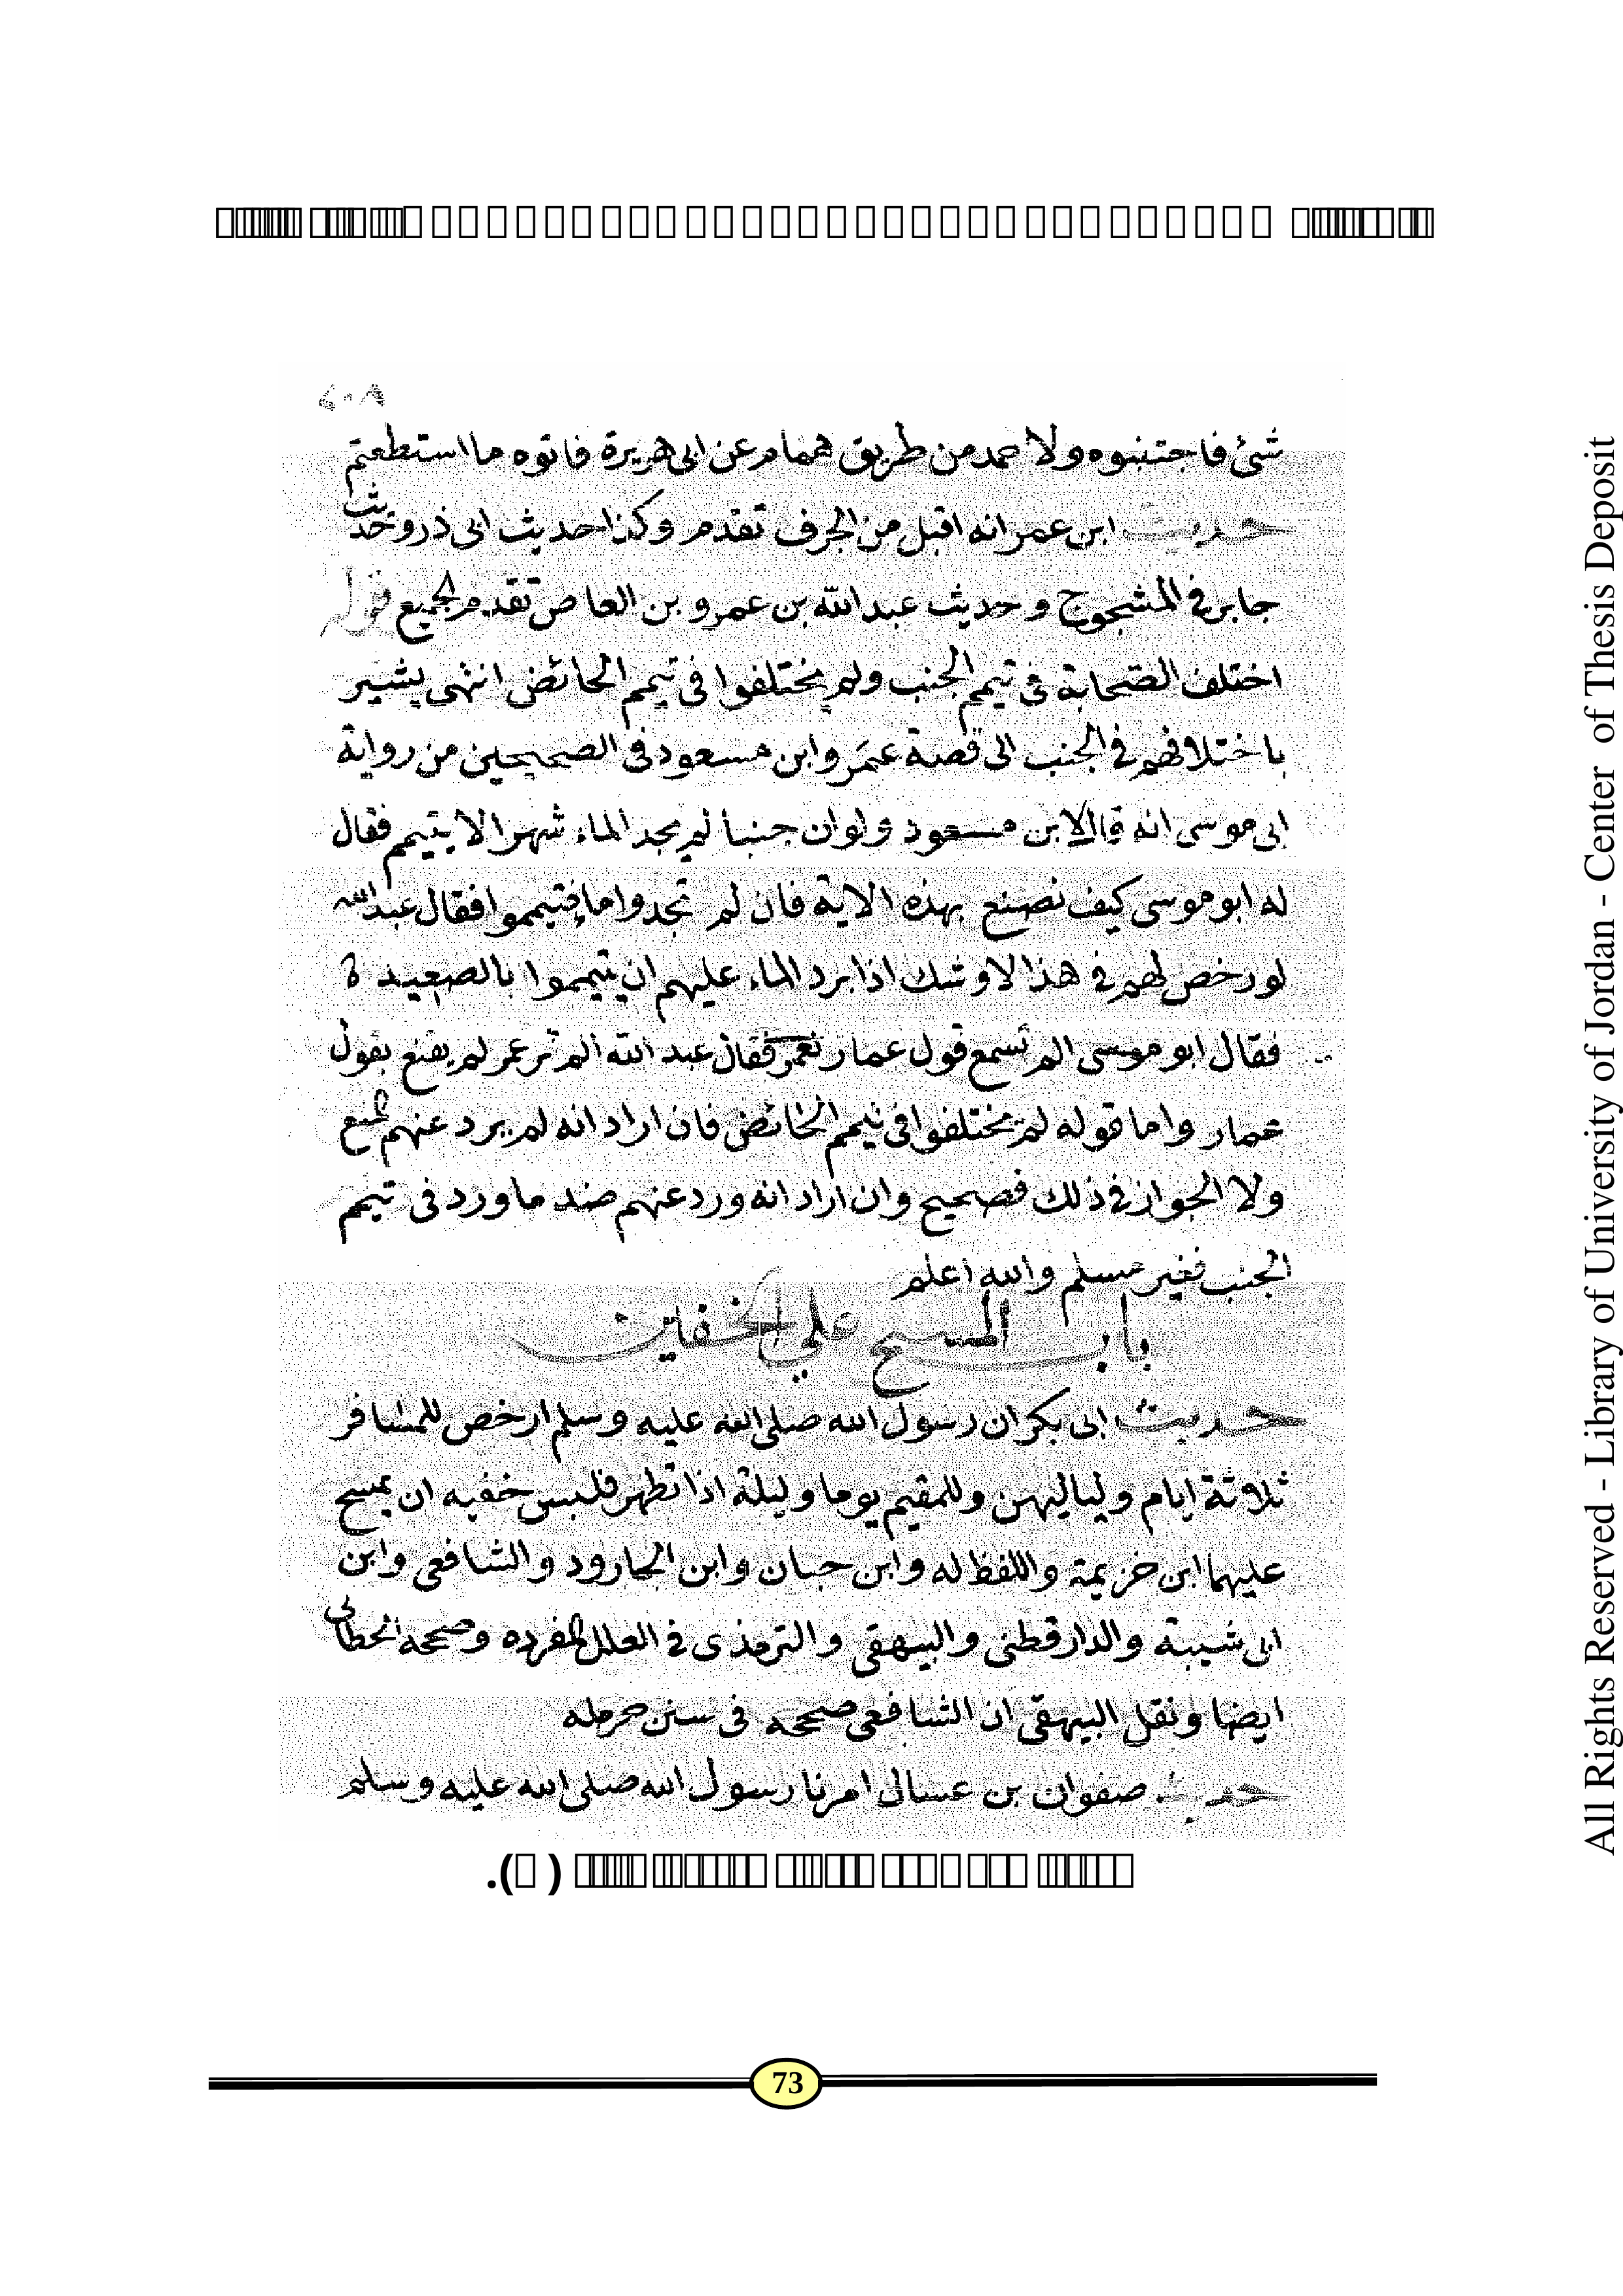 شئ فاجتنبوه ولاحمد من طريق همام عن ابى هريرة فاتوه ما استطعتم
حديث ابن عمر انه اقبل من الجرف تقدم وكذا حديث ابى ذر وحديث
جابر فى المشجوج و حديث عبد الله بن عمرو بن العاص تقدم الجميع قوله
اختلف الصحابة فى تيمم الجنب ولم يختلفوا فى تيمم الحائض انتهى يشير
باختلافهم فى الجنب الى قصة عمر وابن مسعود فى الصحيحين من رواية
ابى موسى انه قال لابن مسعود ولو ان جنبا لم يجد الماء شهرا الا يتيمم فقال
له ابو موسى كيف نصنع بهذه الاية فان لم تجدوا ماء فتيمموا فقال عبد الله
لو رخص لهم فى هذا لاوشك اذا برد الماء عليهم ان يتيمموا بالصعيد
فقال ابو موسى الم تسمع قول عمار لعمر فقال عبد الله الم تر عمر لم يقنع بقول
عمار واما قوله لم يختلفوا فى تيمم الحائض فان اراد انه لم يرد عنهم المنع
ولا الجواز فى ذلك فصحيح وان اراد انه ورد عنهم ضد ما ورد فى تيمم
الجنب فغير مسلم والله اعلم
باب المسح على الخفين
حديث ابى بكر ان رسول الله صلى الله عليه وسلم ارخص للمسافر
ثلاثة ايام ولياليهن وللمقيم يوما وليلة اذا تطهر فلبس خفيه ان يمسح
عليهما ابن خزيمة واللفظ له وابن حبان وابن الجارود والشافعى وابن
ابى شيبة والدارقطنى والبيهقى والترمذى فى العلل المفرده وصححه الخطابى
ايضا ونقل البيهقى ان الشافعى صححه فى سنن حرمله
حديث صفوان بن عسال امرنا رسول الله صلى الله عليه وسلم
73
All Rights Reserved - Library of University of Jordan - Center of Thesis Deposit